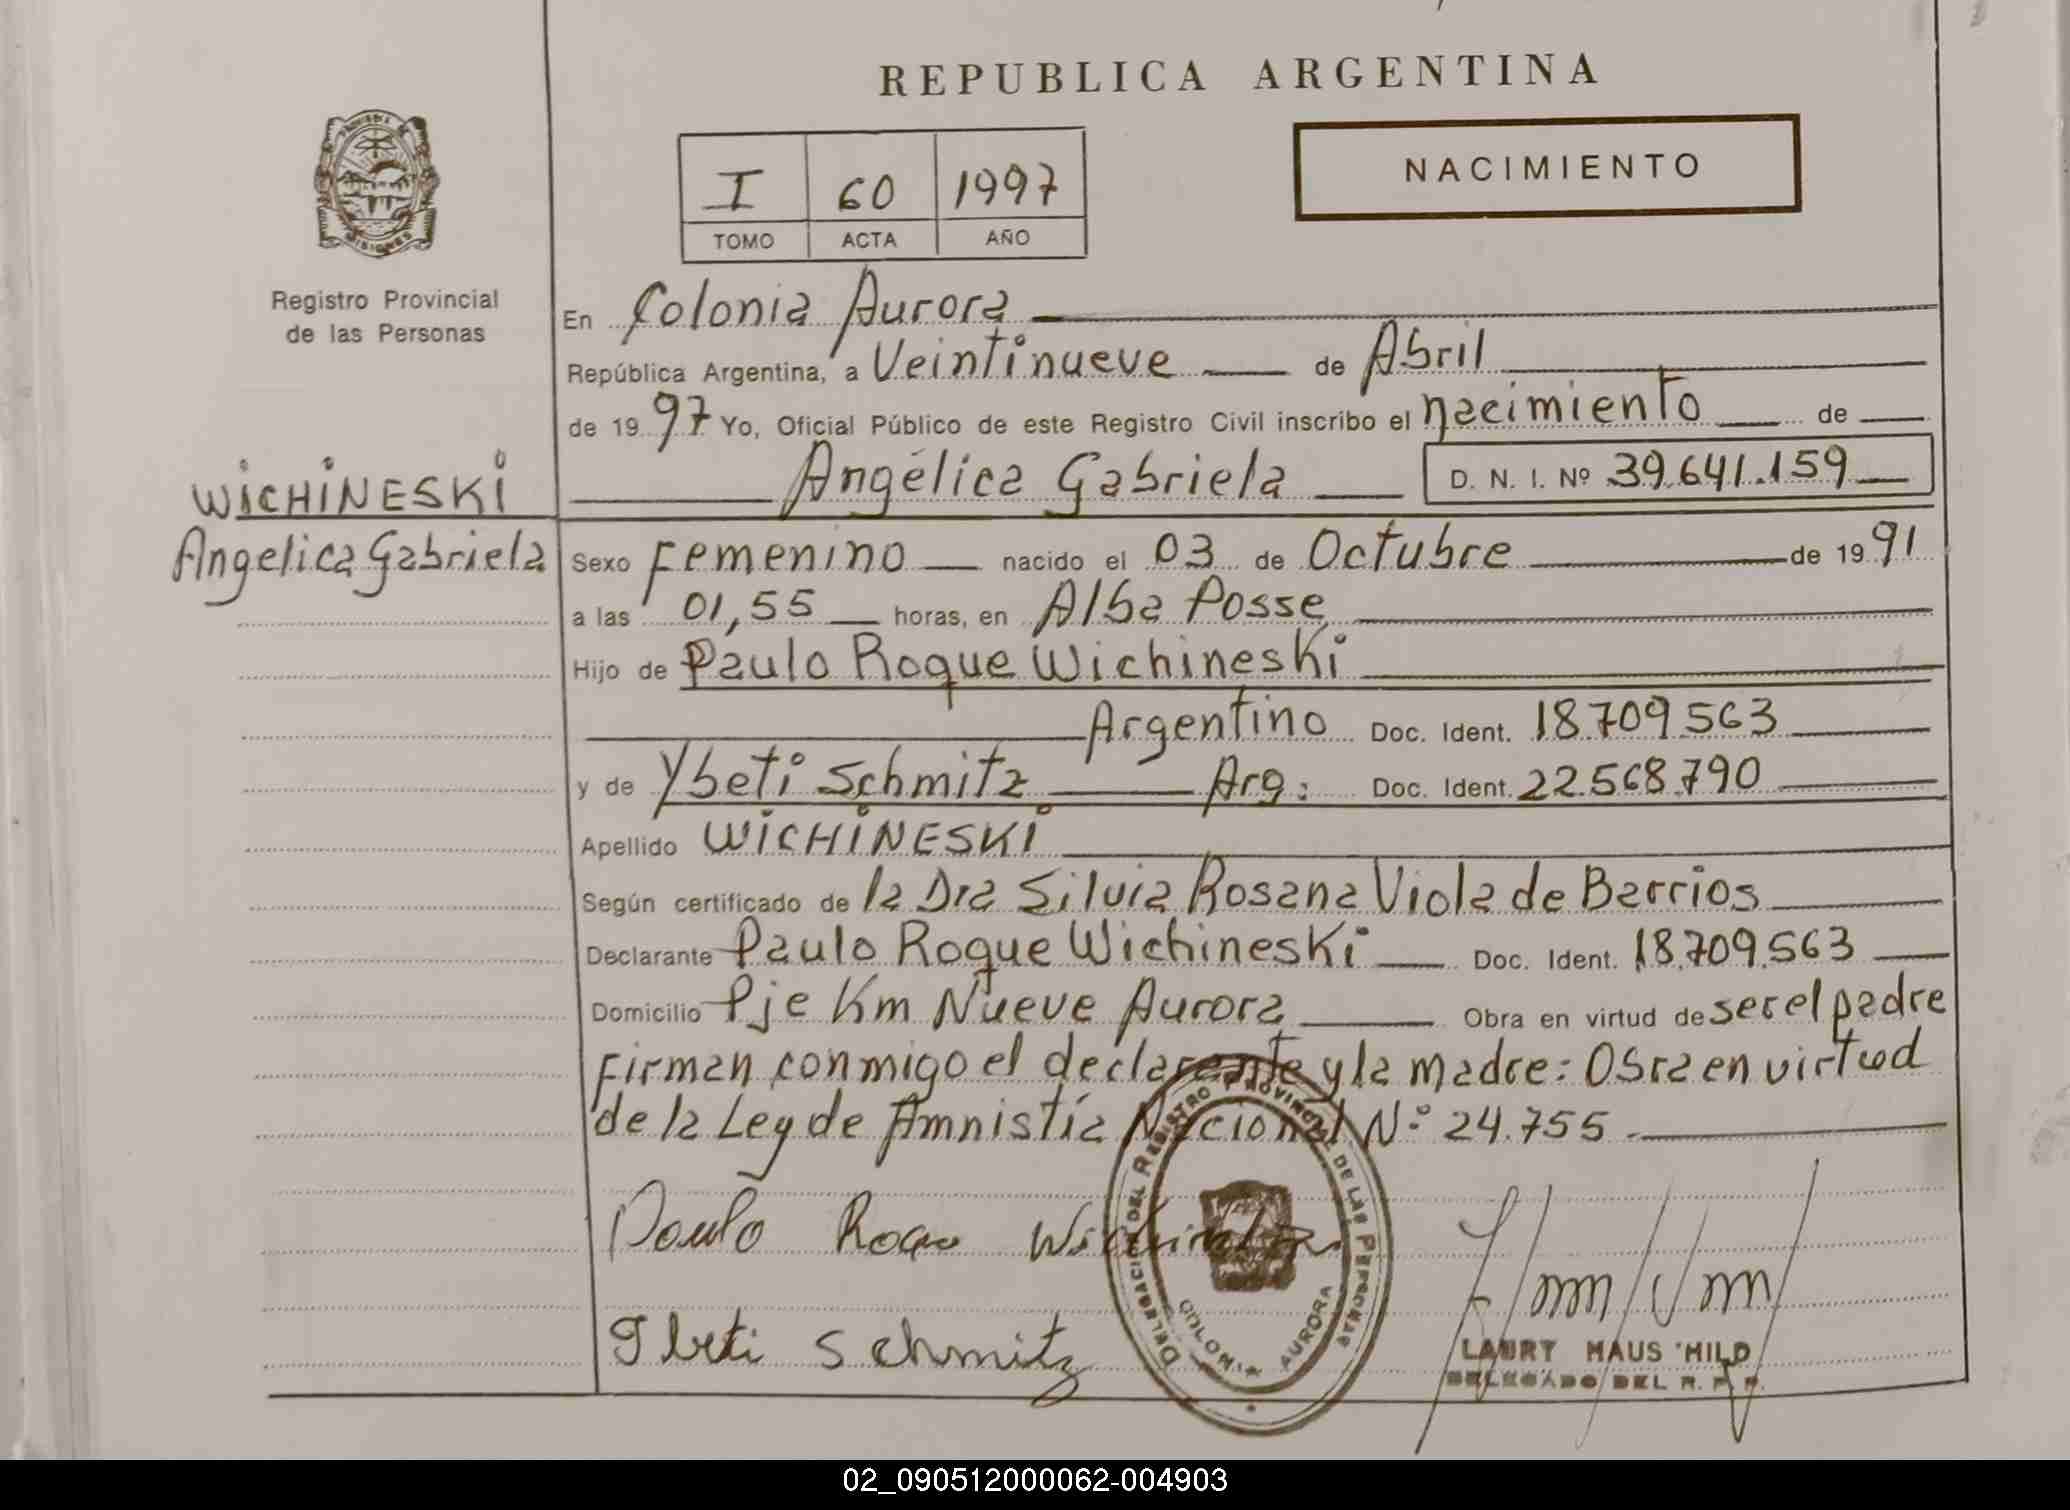 REPUBLICA ARGENTINA
PROVINCIA DE MISIONES
I 60 1997
TOMO ACTA AÑO
NACIMIENTO
Registro Provincial
de las Personas
WICHINESKI
Angelica Gabriela
En Colonia Aurora
República Argentina, a Veintinueve de Abril
de 1997 Yo, Oficial Público de este Registro Civil inscribo el nacimiento de
Angélica Gabriela D. N. I. Nº 39.641.159
Sexo Femenino nacido el 03 de Octubre de 1991
a las 01,55 horas, en Alba Posse
Hijo de Paulo Roque Wichineski
Argentino Doc. Ident. 18.709.563
y de Ybeti Schmitz Arg: Doc. Ident. 22.568.790
Apellido WICHINESKI
Según certificado de la Dra Silvia Rosana Viola de Barrios
Declarante Paulo Roque Wichineski Doc. Ident. 18.709.563
Domicilio Pje Km Nueve Aurora Obra en virtud de ser el padre
Firman conmigo el declarante y la madre: Obra en virtud
de la Ley de Amnistía Nacional Nº 24.755
Paulo Roque
Ibeti Schmitz
DELEGACION DEL REGISTRO PROVINCIAL DE LAS PERSONAS
COLONIA AURORA
LAURY HAUS HILD
DELEGADO DEL R. P. P.
02_090512000062-004903